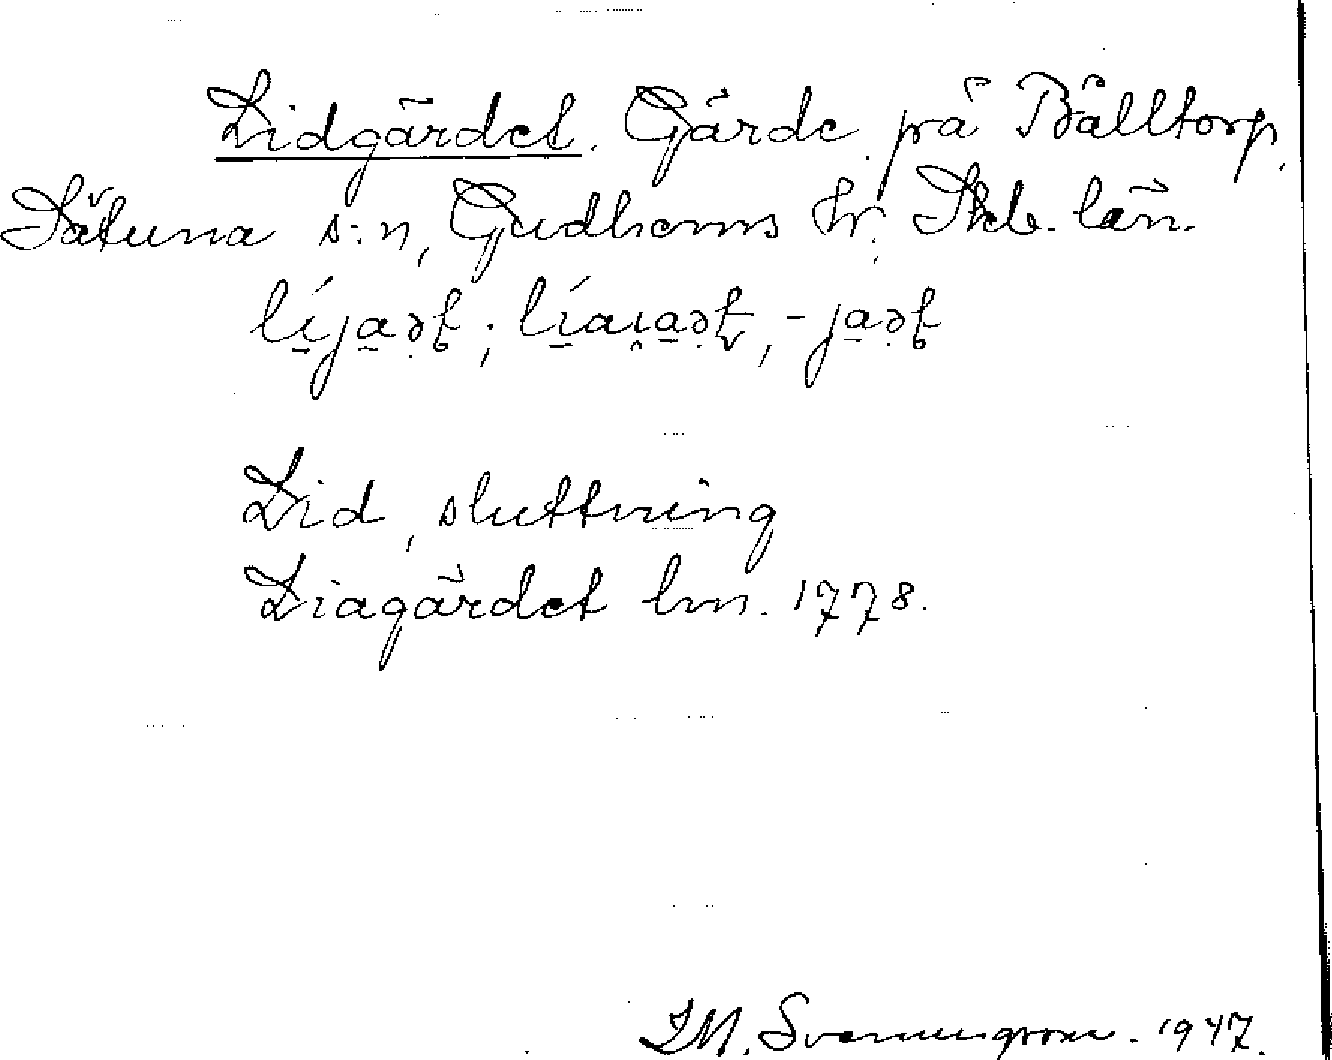 Lidgärdet. Gärde på Bålltorp,
Sätuna s:n, Gudhems hr. Skb. län.
Lid, sluttning
Liagärdet lm. 1778.
I.M. Svenungsson. 1947.